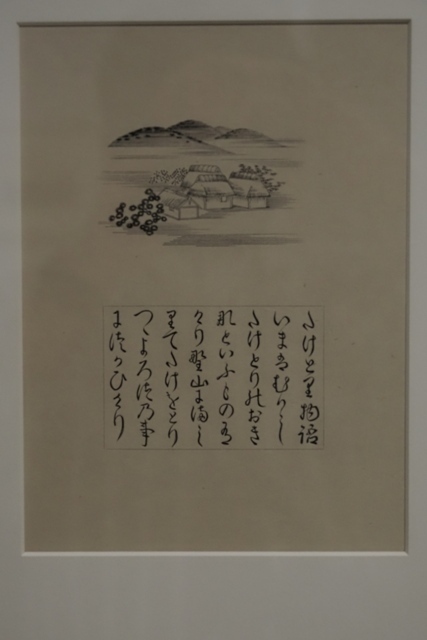 たけとり物語
いまはむかし
たけとりのおき
なといふもの有
けり野山にまし
りてたけをとり
つゝよろつの事
につかひけり